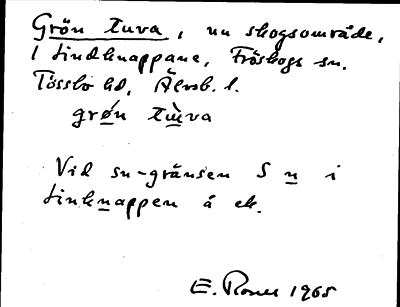 Grön tuva, nu skogsområde,
i Lindknappane, Fröskogs sn.
Tössbo hd, Älvsb. l.
grǿn tùva
Vid sn-gränsen S n i
Linknappen å ek.
E. Rones 1965